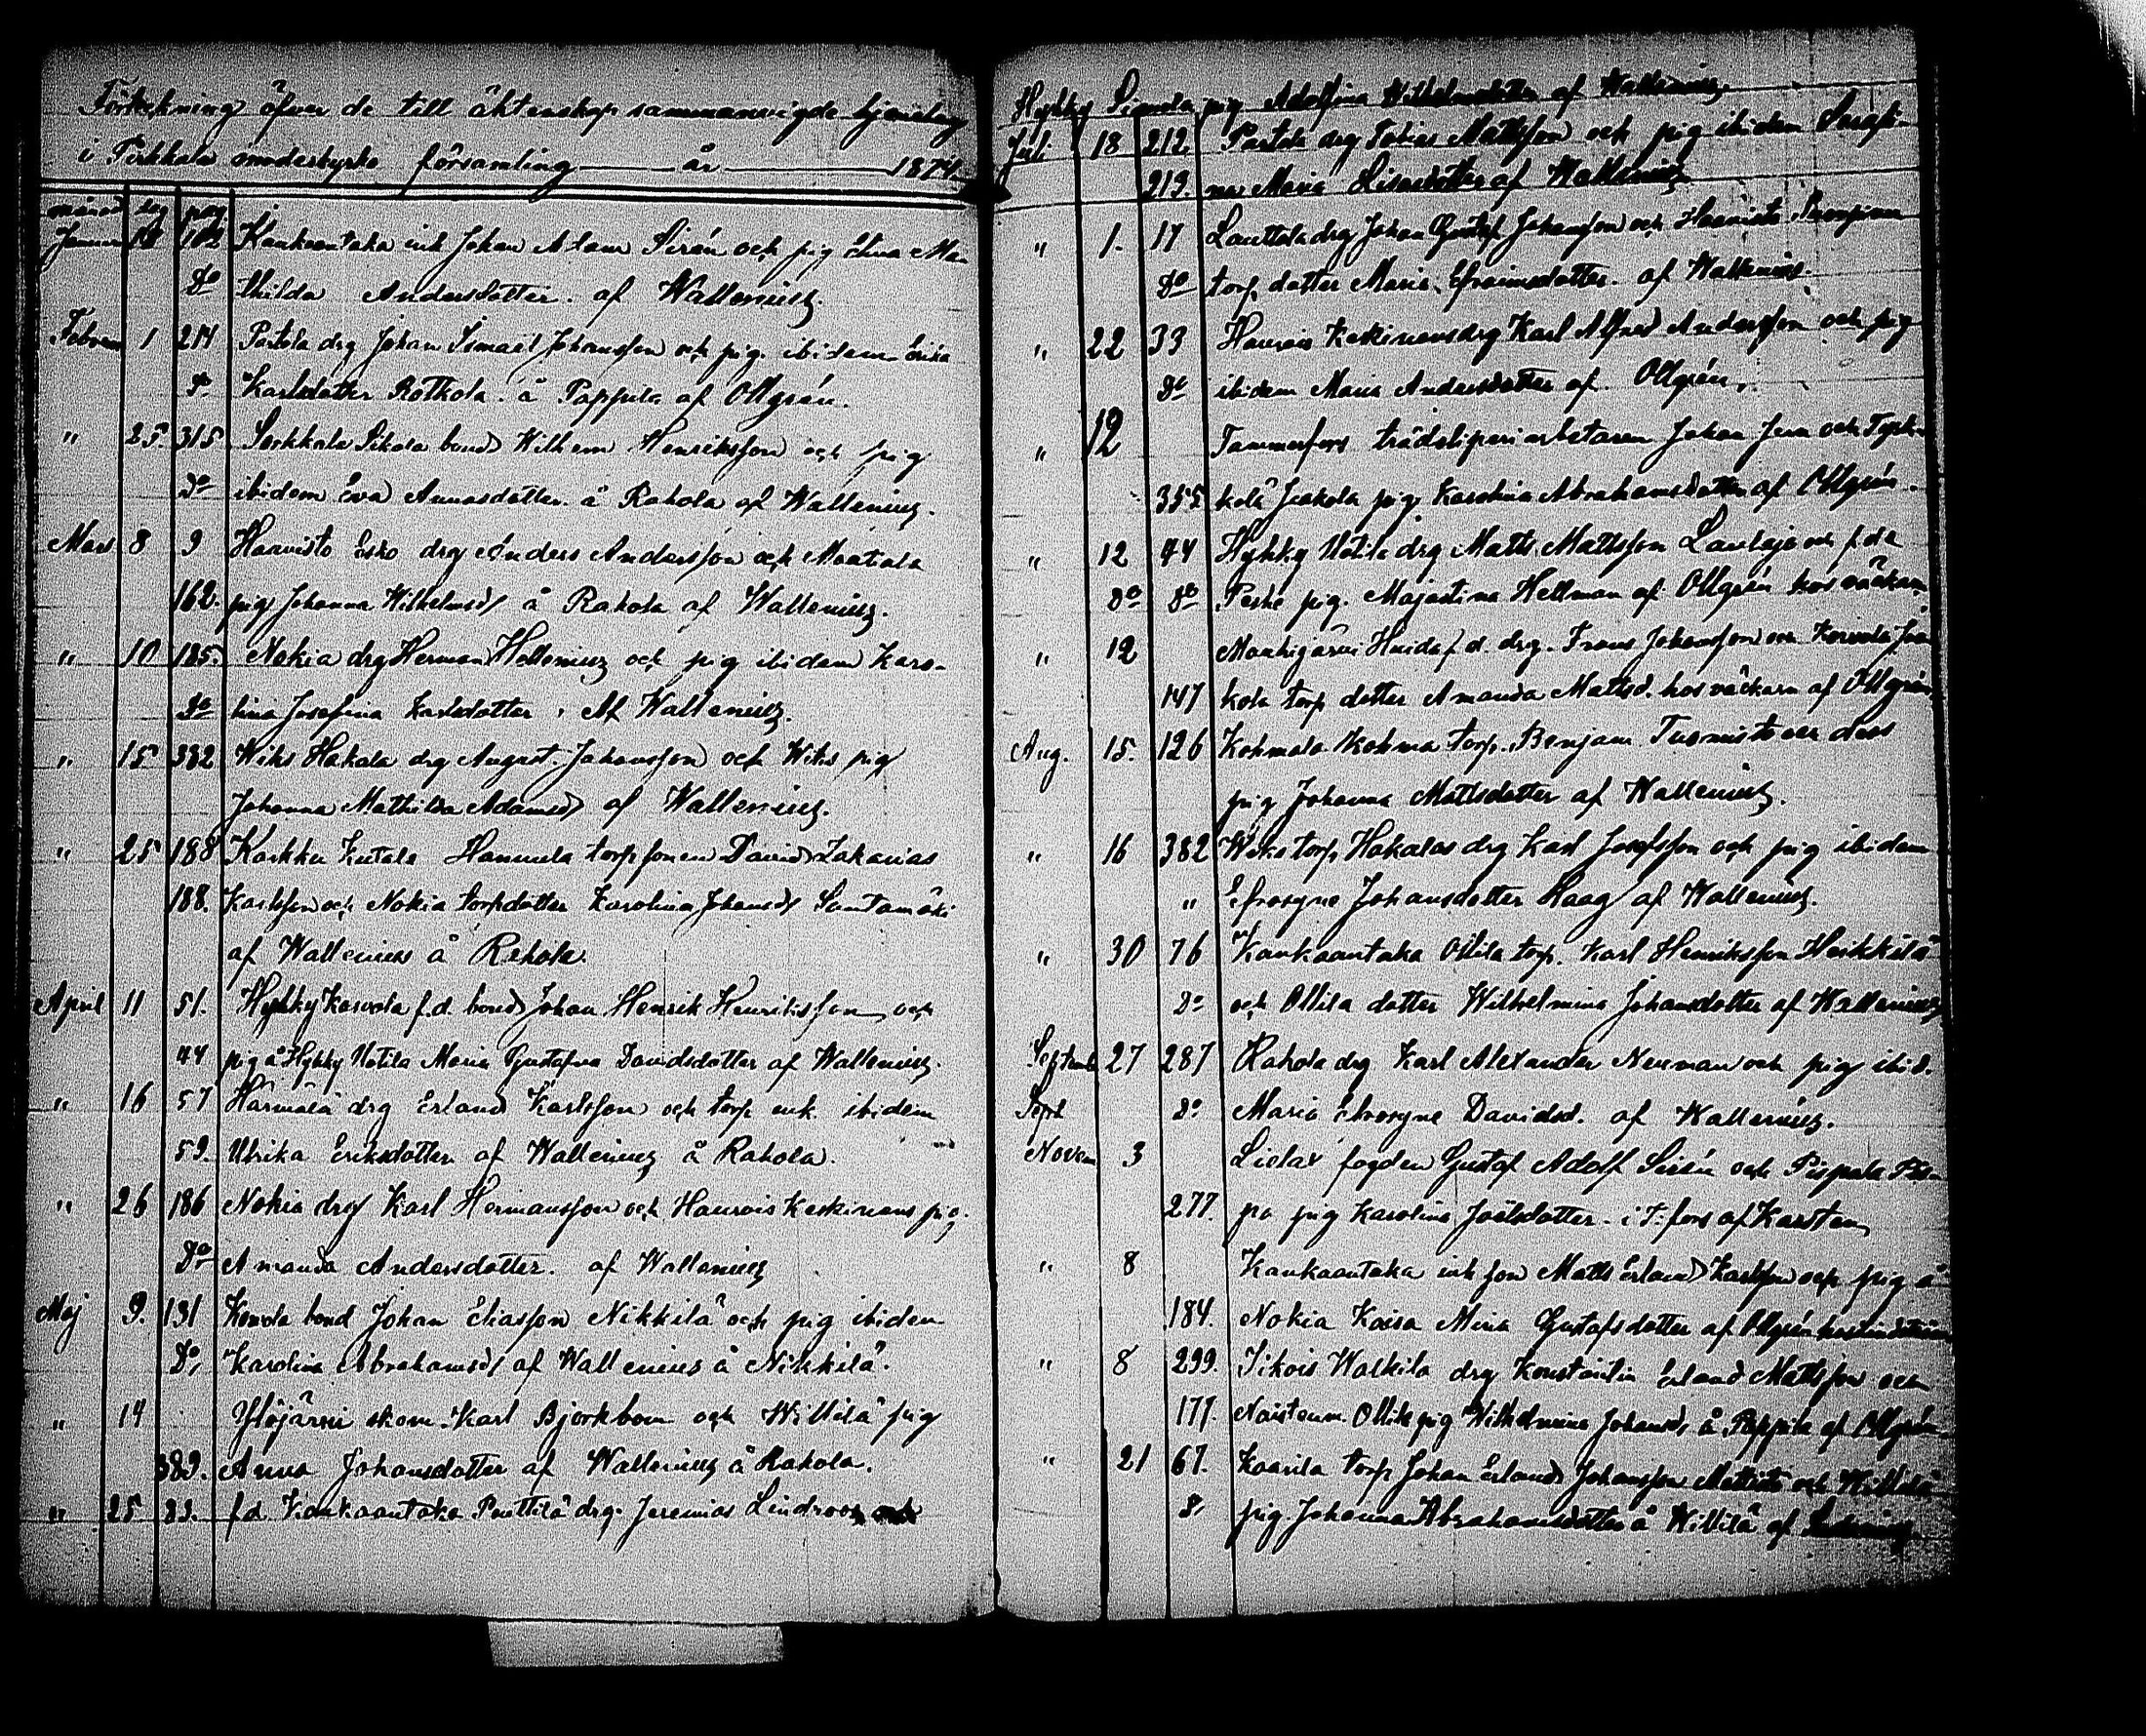 Förteckning öfver de till äktenskap sammanvigde hjonelag
i Birkkala moderkyrko församling år 1874
månad dag pag
Januar 18 182 Kankaantaka inh Johan Adam Sirén och pig Eva Ma-
Do thilda Andersdotter. af Wallenius.
Februar 1 214 Partola drg Johan Ismael Johansson och pig. ibidem Erika
Do Karlsdotter Rotkola. å Pappila af Ollgrén.
" 25. 315 Sarkkala Sikala bond Wilhem Henriksson och pig
Do ibidem Eva Annasdotter. å Rahola af Wallenius.
Mars 8 9 Haavisto Esko drg Anders Andersson och Maatala
162. pig Johanna Wilhelmsd å Rahola af Wallenius.
" 10 185. Nokia drg Herman Hellenius och pig ibidem Karo-
Do lina Josefina Karlsdotter. Af Wallenius.
" 15 382 Wiks Hakala drg August Johansson och Wiks pig
Johanna Mathilda Adamsd af Wallenius.
" 25 188 Karkku Kutala Hannula torp sonen David Zakarias
188. Karlsson och Nokia torpdotter Karolina Johansd Santamäki
af Wallenius å Rahola.
April 11 51. Hyhky Kasvola f.d. bond Johan Henrik Henriksson och
44 pig å Hyhky Uotila Maria Gustafva Davidsdotter af Wallenius.
" 16 57 Härmälä drg Erland Karlsson och torp enk. ibidem
59. Ulrika Eriksdotter af Wallenius å Rahola.
" 26 186 Nokia drg Karl Hermansson och Haurois Keskinens pig.
Do Amanda Andersdotter. af Wallenius
Maj 9. 131 Konola bond Johan Eliasson Nikkilä och pig ibidem
Do, Karolina Abrahamsd af Wallenius å Nikkilä.
" 14 Ylöjärvi skom. Karl Bjorkbom och Willilä pig
389. Anna Johansdotter af Wallenius å Rahola.
" 25 83. f.d. Kankaantaka Penttilä drg. Jeremias Lindroos och
Hyhky Pig Adolfina Wilhelmsdotter af Wallenius.
Juli 18 212. Partola drg Tobias Mattsson och pig ibidem Serafi-
213. na Maria Lisasdotter af Wallenius
" 1. 17 Lauttala drg Johan Gustaf Johansson och Haavisto
Do torp dotter Maria Efraimsdotter. af Wallenius.
" 22 33 Haurois Keskinens drg Karl Alfred Andersson och pig
Do ibidem Maria Andersdotter af Ollgrén.
" 12 Tammerfors trädsliperi arbetaren Johan Jern och
355 Jaakola pig Karolina Abrahamsdotter af Ollgrén.
" 12 44 Hyhky Uotila drg Matts Mattsson Laulaja och f.d.
Do Do Peska pig. Majastina Hellman af Ollgrén hos väckarn
" 12 Maatigärvi f.d. drg. Frans Johansson och
147 kola torp dotter Amanda Mattsd. hos väckarn af Ollgrén
Aug. 15. 126 Kohmala Kohma torp. Benjam Tuomisto och dess
pig Johanna Mattsdotter af Wallenius.
" 16 382 Wiks torp Hakalas drg Karl Josefsson och pig ibidem
" Efrosyne Johansdotter Haag af Wallenius.
" 30 76 Kankaantaka Ollila torp. Karl Henriksson Heikkilä
Do och Ollila dotter Wilhelmina Johansdotter af Wallenius
Septemb 27 287 Rahola drg Karl Alexander Neuman och pig ibid.
Sept Do Maria Efrosyne Davidsd. af Wallenius.
Novem 3 Lielax fogden Gustaf Adolf Sirén och Pispala
277. pa pig Karolina Joëlsdotter. i T:fors af Karsten
" 8 Kankaantaka inh son Matts Erland Karlsson och pig å
184. Nokia Kaisa Mina Gustafsdotter af Ollgrén
" 8 299. Sikois Walkila drg Konstantin Erland Mattsson och
177. Naistenm. Ollik pig Wilhelmina Johansd å Pappila af Ollgrén
" 21 67. Kaarila torp Johan Erland Johansson Mattista och Willilä
8. pig Johanna Abrahamsdotter å Willilä af